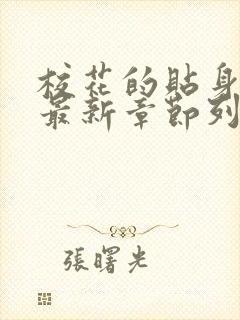 校花的貼身
最新章節列
張曙光